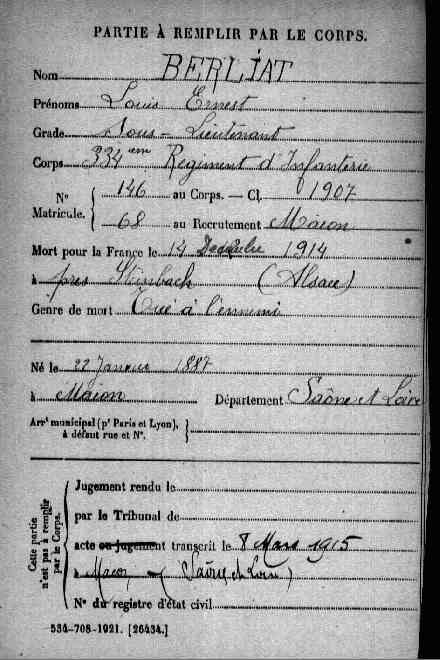 PARTIE À REMPLIR PAR LE CORPS.
Nom BERLIAT
Prénoms Louis Ernest
Grade Sous - Lieutenant
Corps 334 em Regiment d'Infanterie
N° Matricule. { 146 au Corps. — Cl. 1907
68 au Recrutement Macon
Mort pour la France le 14 Decembre 1914
à près Steinbach (Alsace)
Genre de mort Tué à l'ennemi
Né le 22 Janvier 1887
à Macon Département Saône et Loire
Arrt municipal (pr Paris et Lyon), à défaut rue et N°. }
Cette partie n'est pas à remplir par le Corps.
Jugement rendu le
par le Tribunal de
acte ou jugement transcrit le 8 Mars 1915
à Macon (Saône et Loire)
N° du registre d'état civil
534-708-1921. [26434.]